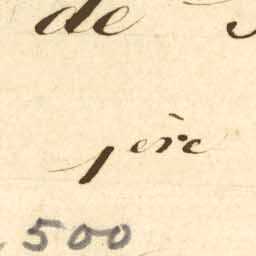 de
1ère
500